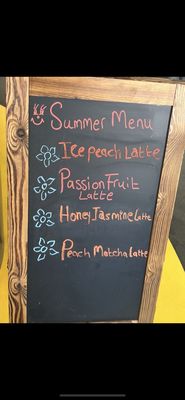 Summer Menu
Ice peach Latte
Passion Fruit
Latte
Honey Jasmine Latte
Peach Matcha Latte